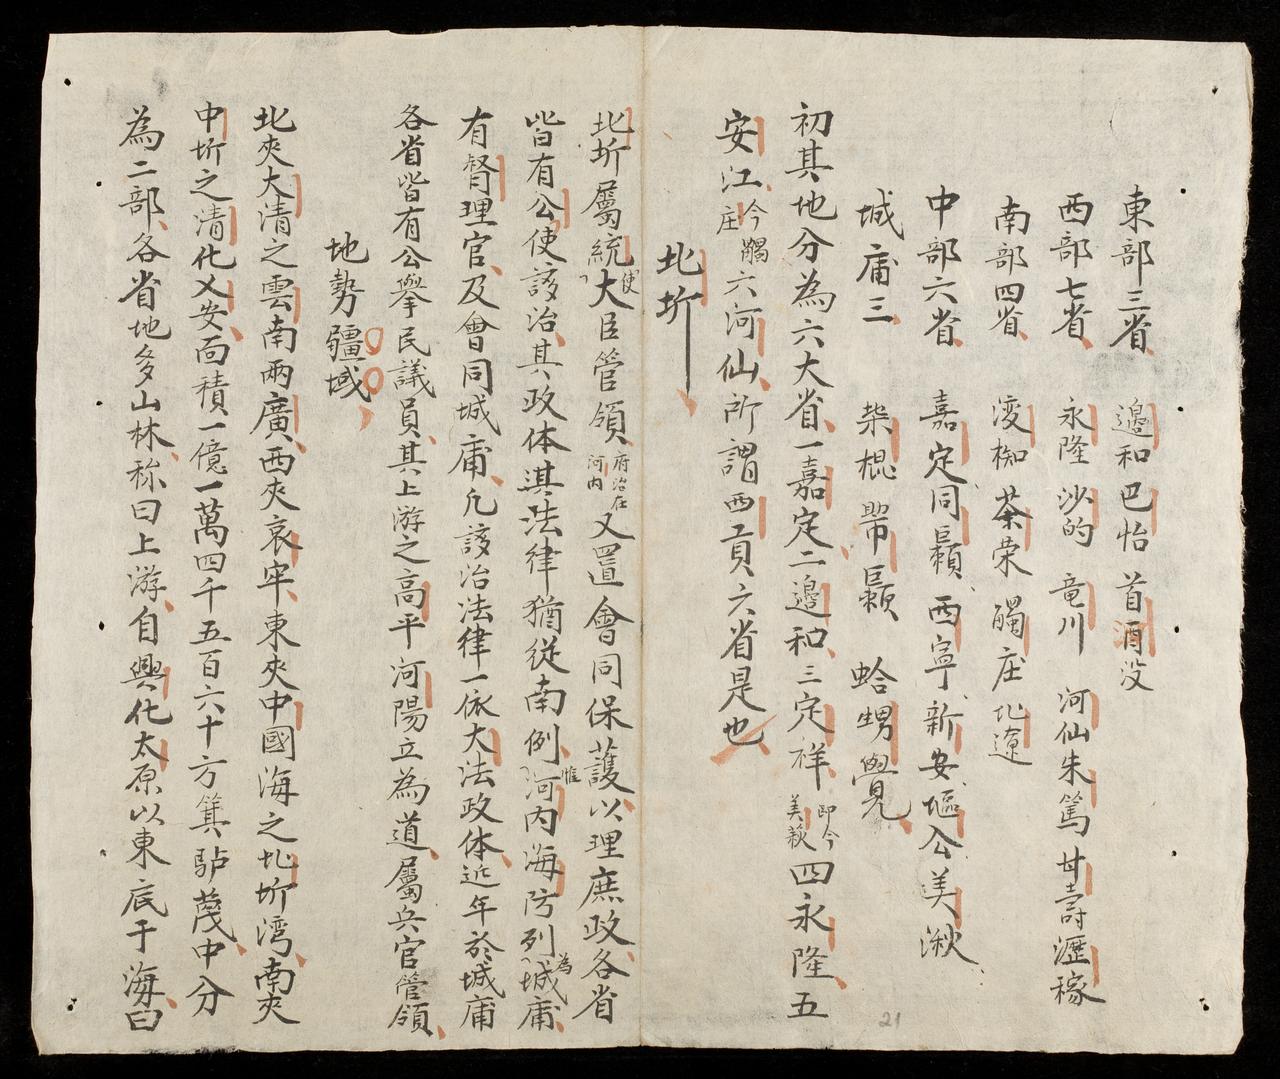 東部三省 邉和 巴怡 首酉没
西部七省 永隆 沙的 竜川 河仙 朱篤 芹壽 瀝稼
南部四省 浚椥 茶荣 髑庄 北遼
中部六省 嘉定 同 西寧 新安 堀公 美湫
城庸三 柴棍 𢄂 蛤甥覺
初其地分為六大省一嘉定二邉和三定祥即今美萩四永隆五
安江今髑庄六河仙所謂西貢六省是也
北圻
北圻屬統使大臣管領府治在河内又置會同保護以理庶政各省
皆有公使該治其政体淇法律猶從南例惟河内海防列為城庸
有督理官及會同城庸凢該治法律一依大法政体近年於城庸
各省皆有公舉民議員其上游之高平河陽立為道屬兵官管領
地勢疆域
北夾大清之雲南兩廣西夾哀牢東夾中國海之北圻湾南夾
中圻之清化乂安面積一億一萬四千五百六十方箕驴蔑中分
為二部各省地多山林称曰上游自興化太原以東底于海曰
21